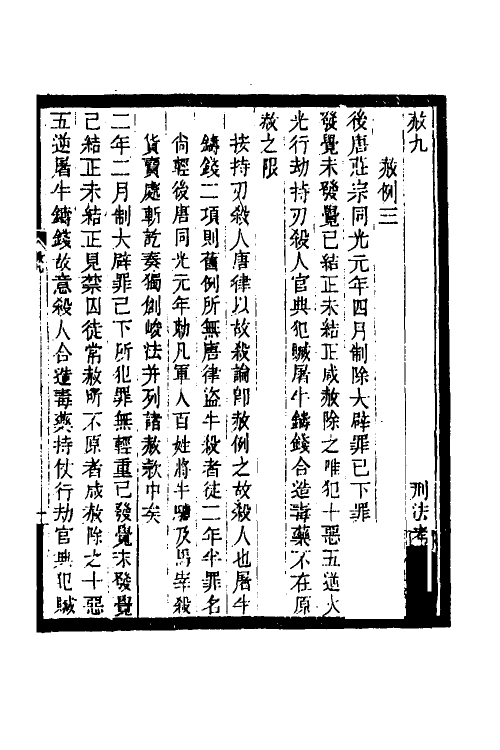 赦九　刑法考
赦例三
後唐莊宗同光元年四月制除大辟罪已下罪
發覺未發覺已結正未結正咸赦除之唯犯十惡五逆火
光行劫持刃殺人官典犯贓屠牛鑄錢合造毒藥不在原
赦之限
按持刃殺人唐律以故殺論卽赦例之故殺人也屠牛
鑄錢二項則舊例所無唐律盜牛殺者徒二年半罪名
尙輕後唐同光元年勅凡軍人百姓將牛驢及馬宰殺
貨賣處斬訖奏獨創峻法幷列諸赦款中矣
二年二月制大辟罪已下所犯罪無輕重已發覺未發覺
已結正未結正見禁囚徒常赦所不原者咸赦除之十惡
五逆屠牛鑄錢故意殺人合造毒藥持仗行劫官典犯贓